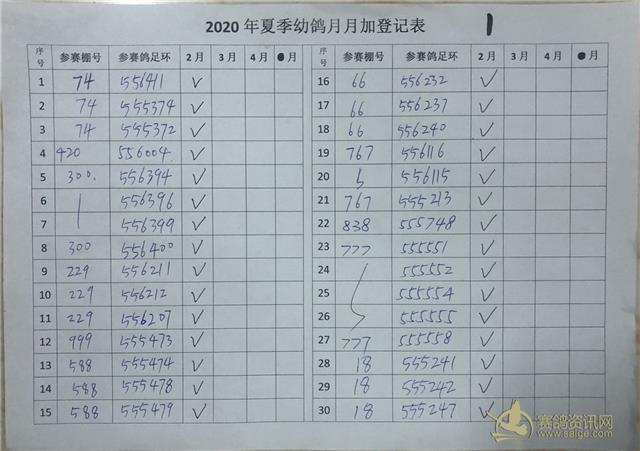 2020 年夏季幼鸽月月加登记表 1
序号 参赛棚号 参赛鸽足环 2月 3月 4月 月 序号 参赛棚号 参赛鸽足环 2月 3月 4月 月
1 74 556411 ✓ 16 66 556232 ✓
2 74 555374 ✓ 17 66 556237 ✓
3 74 555372 ✓ 18 66 556240 ✓
4 420 556004 ✓ 19 767 556116 ✓
5 300. 556394 ✓ 20 556115 ✓
6 556396 ✓ 21 767 555213 ✓
7 556399 ✓ 22 838 555748 ✓
8 300 556400 ✓ 23 777 555551 ✓
9 229 556211 ✓ 24 555552 ✓
10 229 556212 ✓ 25 555554 ✓
11 229 556207 ✓ 26 555555 ✓
12 999 555473 ✓ 27 777 555558 ✓
13 588 555474 ✓ 28 18 555241 ✓
14 588 555478 ✓ 29 18 555242 ✓
15 588 555479 ✓ 30 18 555247 ✓
赛鸽资讯网
www.saige.com